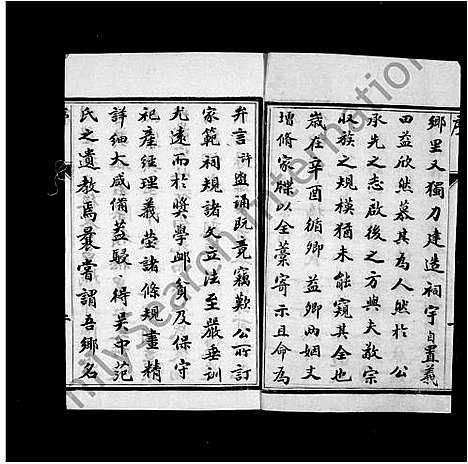 序
鄉里又獨力建造祠宇自置義
田益欣然慕其為人然於 公
承先之志啟後之方與夫敬宗
收族之規模猶未能窺其全也
歲在辛酉循卿 益卿兩姻丈
增脩家牒以全藁寄示且命為
弁言 盥誦既竟竊歎 公所訂
家範祠規諸文立法至嚴垂訓
尤遠而於獎學卹貧及保守
祀產經理義塋諸條規畫精
詳細大咸備蓋駸 得吳中范
氏之遺教焉曩嘗謂吾鄉名
FamilySearch International